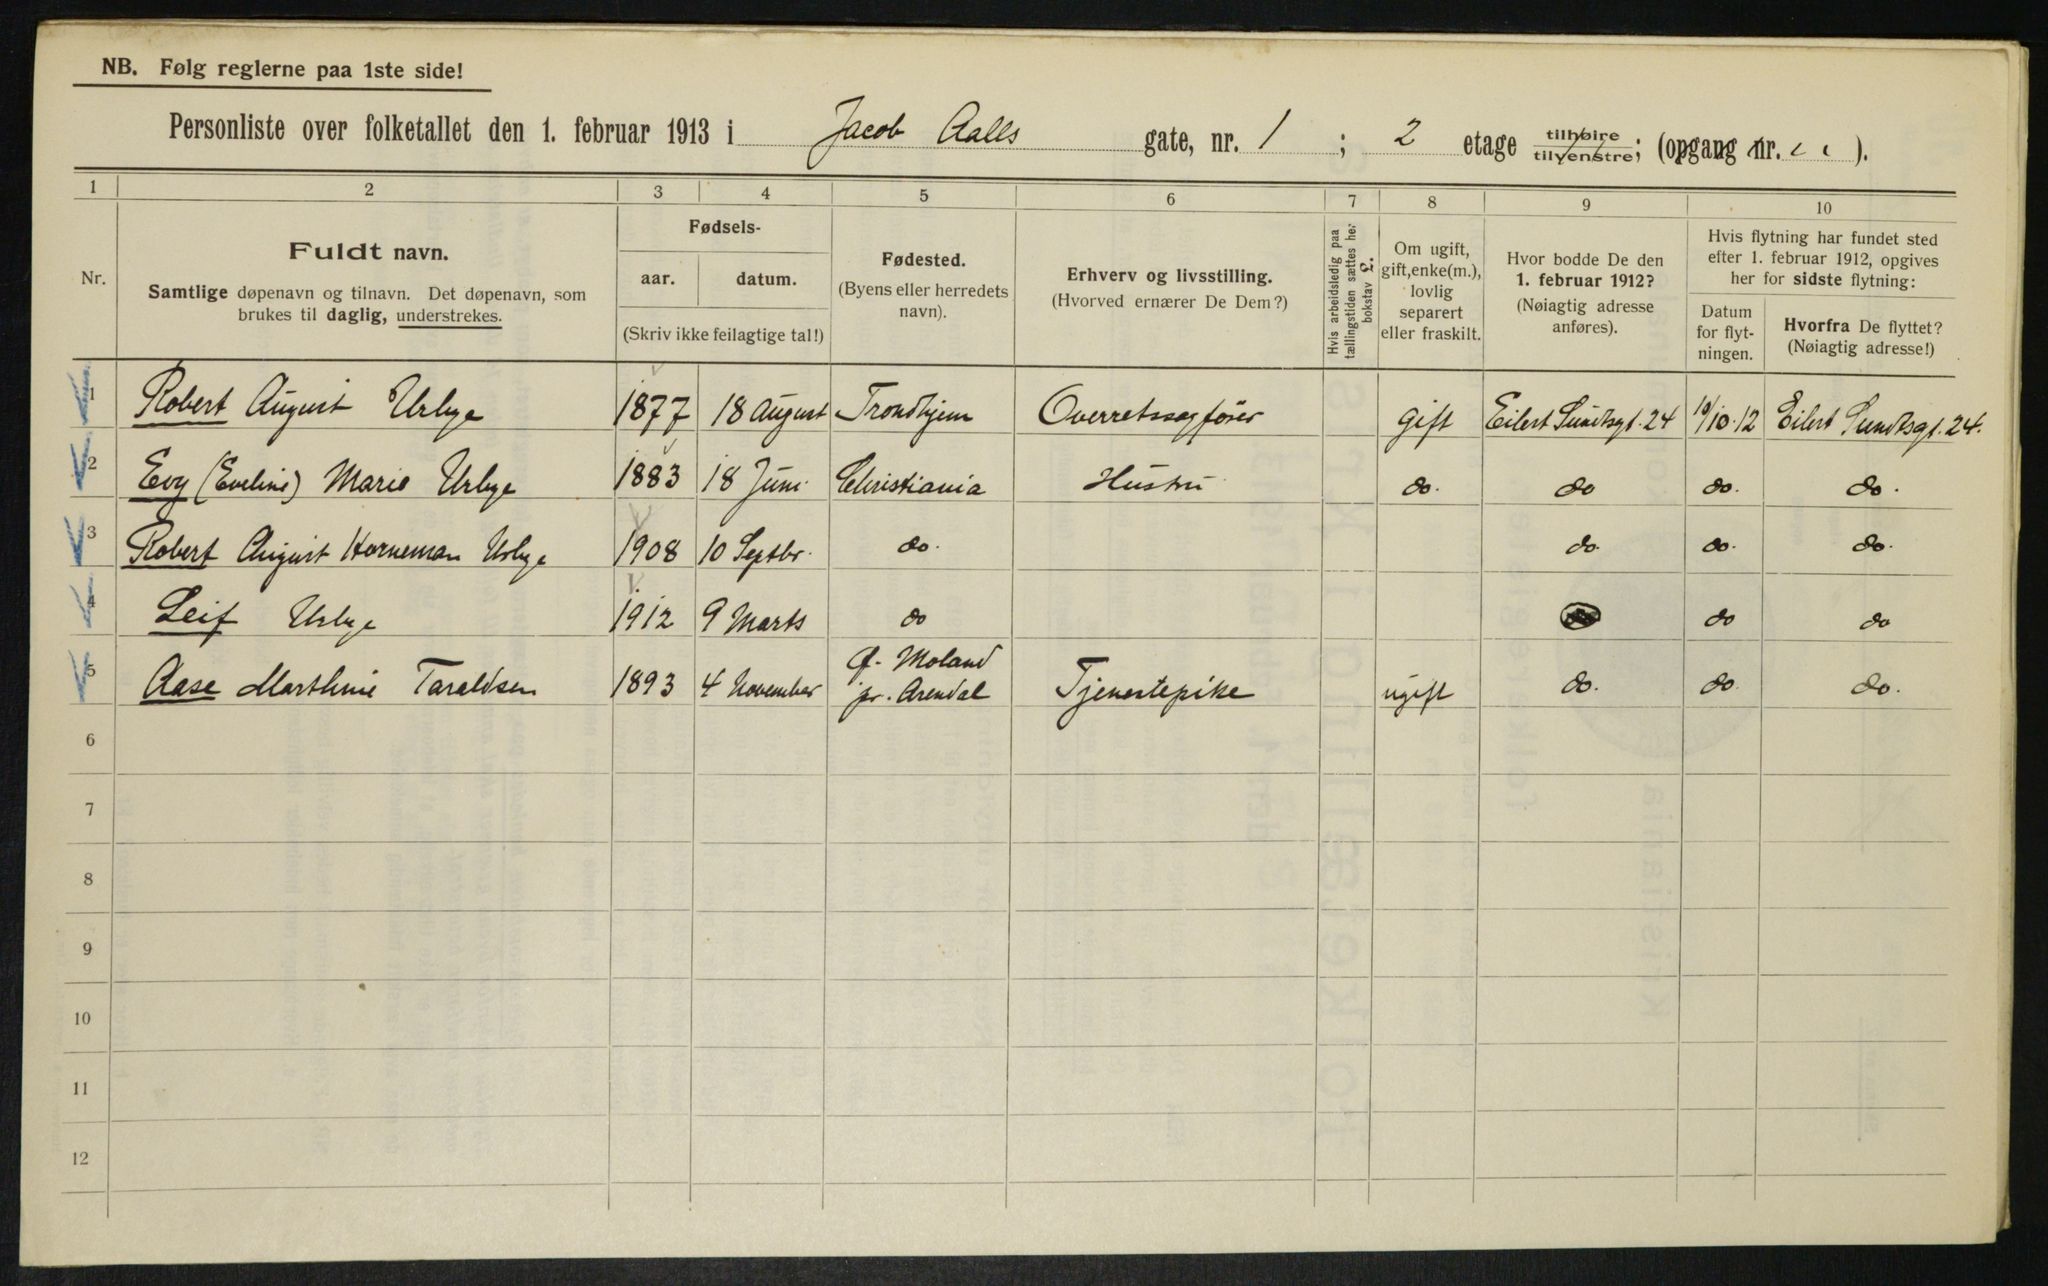 NB. Følg reglerne paa 1ste side!
Personliste over folketallet den 1. februar 1913 i Jacob Aalls gate, nr. 1 ; 2 etage tilhøire tilvenstre; (opgang nr. ).
1 2 3 4 5 6 7 8 9 10
Nr.
Fuldt navn.
Samtlige døpenavn og tilnavn. Det døpenavn, som
brukes til daglig, understrekes.
Fødsels-
aar. datum.
(Skriv ikke feilagtige tal!)
Fødested.
(Byens eller herredets
navn).
Erhverv og livsstilling.
(Hvorved ernærer De Dem?)
Hvis arbeidsledig paa
tællingstiden sættes her
bokstav L.
Om ugift,
gift, enke(m.),
lovlig
separert
eller fraskilt.
Hvor bodde De den
1. februar 1912?
(Nøiagtig adresse
anføres).
Hvis flytning har fundet sted
efter 1. februar 1912, opgives
her for sidste flytning:
Datum
for flyt-
ningen.
Hvorfra De flyttet?
(Nøiagtig adresse!)
1 Robert August Urbye 1877 18 August Trondhjem Overretssagfører gift Eilert Sundtsgt. 24 10/10.12 Eilert Sundtsgt. 24.
2 Evy (Eveline) Marie Urbye 1883 18 Juni Christiania Hustru do. do do. do.
3 Robert August Horneman Urbye 1908 10 Septbr. do. do. do. do.
4 Leif Urbye 1912 9 Marts do do do
5 Aase Marthine Taraldsen 1893 4 November Ø. Moland
pr. Arendal Tjenestepike ugift do. do. do.
6
7
8
9
10
11
12